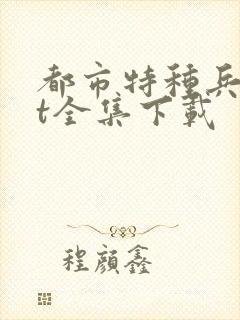 都市特種兵
t全集下載
程顏鑫